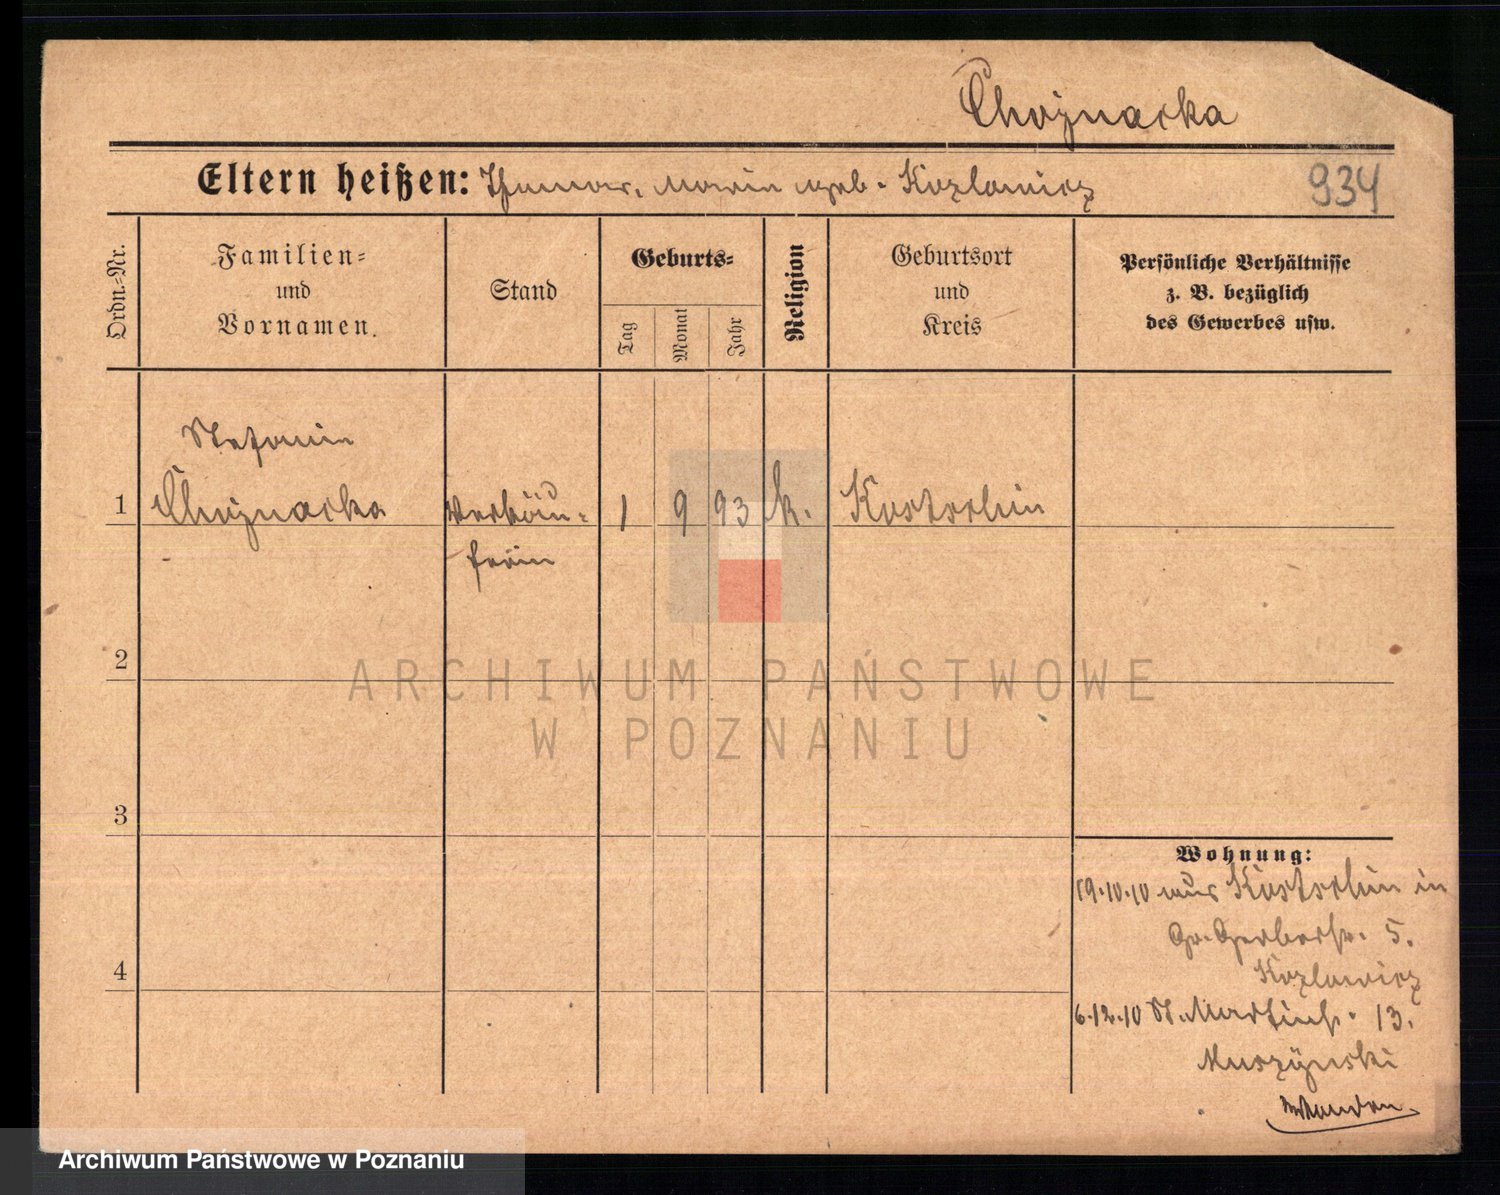 Chojnacka
Eltern heißen: Thomas, Maria geb. Kozlowicz
934
Ordn.-Nr.
Familien-
und
Vornamen.
Stand
Geburts-
Tag
Monat
Jahr
Religion
Geburtsort
und
Kreis
Persönliche Verhältnisse
z. B. bezüglich
des Gewerbes usw.
Stefania
1 Chojnacka Verkäu- 1 9 93 k. Kostschin
ferin
2
3
4
Wohnung:
19.10.10 aus Kostschin in
Gr. Gerberstr. 5.
Kozlowicz
6.12.10 St. Martinstr. 13.
Muszynski
ARCHIWUM PAŃSTWOWE
W POZNANIU
Archiwum Państwowe w Poznaniu